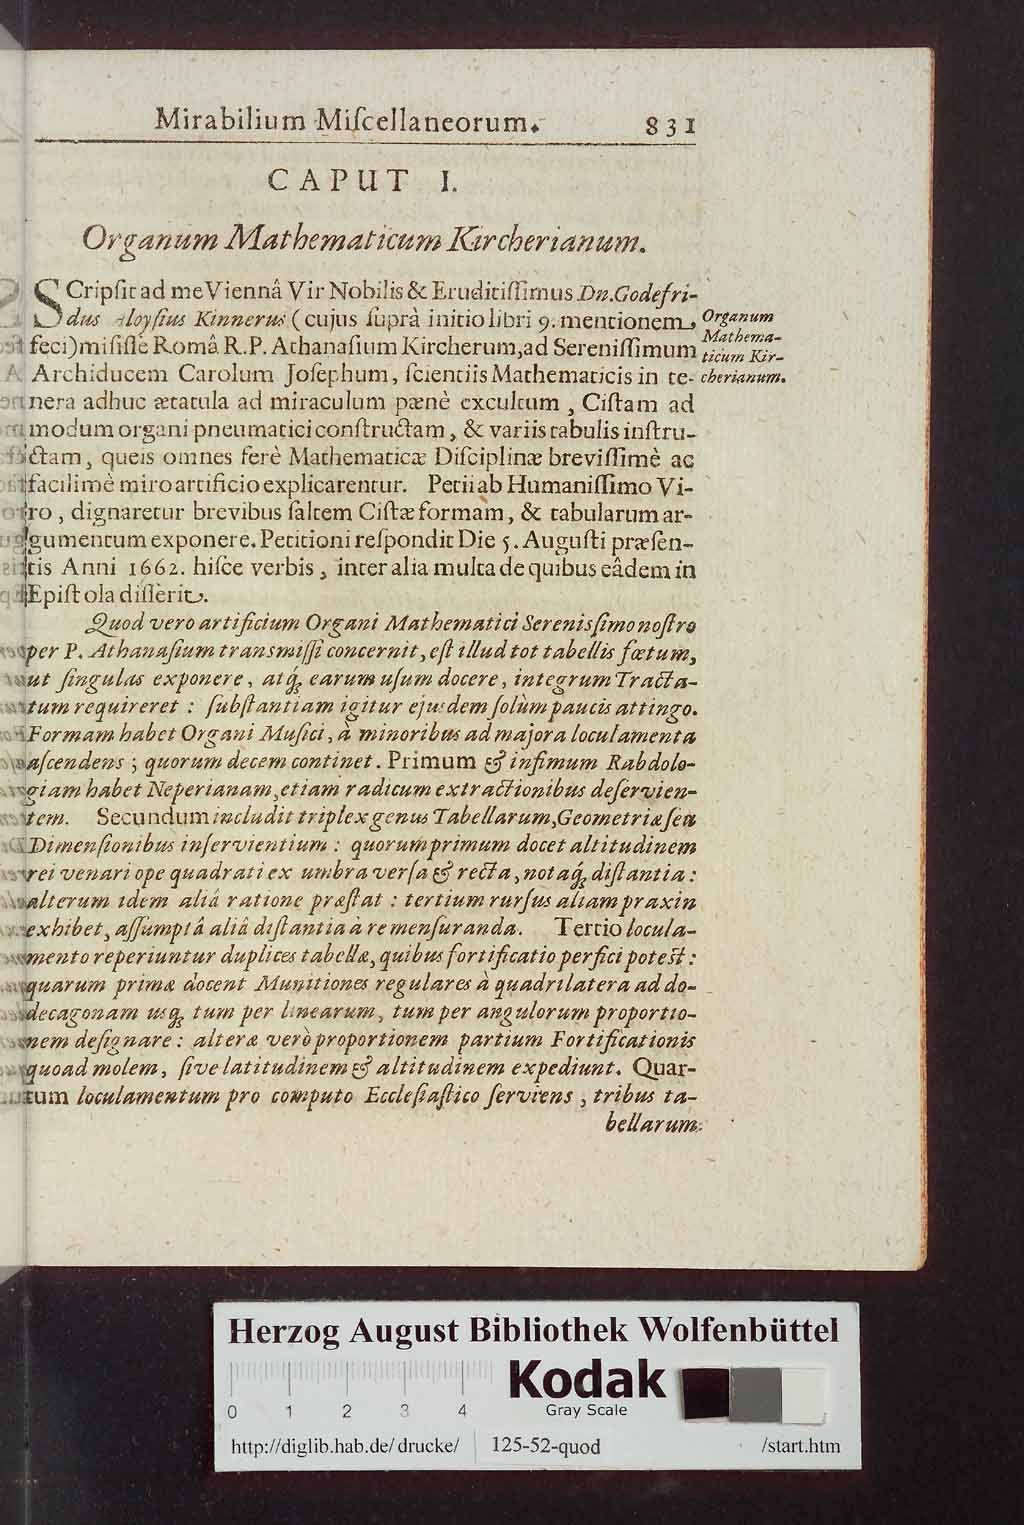 Mirabilium Miſcellaneorum. 831
CAPUT I.
Organum Mathematicum Kircherianum.
SCripſit ad me Viennâ Vir Nobilis & Eruditiſſimus Dn. Godefri-
dus Aloyſius Kinnerus (cujus ſuprà initio libri 9. mentionem
feci) miſiſſe Româ R.P. Athanaſium Kircherum, ad Sereniſſimum
Archiducem Carolum Joſephum, ſcientiis Mathematicis in te-
nera adhuc ætatula ad miraculum pænè excultum, Ciſtam ad
modum organi pneumatici conſtructam, & variis tabulis inſtru-
ctam, queis omnes ferè Mathematicæ Diſciplinæ breviſſimè ac
facilimè miro artificio explicarentur. Petii ab Humaniſſimo Vi-
ro, dignaretur brevibus ſaltem Ciſtæ formam, & tabularum ar-
gumentum exponere. Petitioni reſpondit Die 5. Auguſti præſen-
tis Anni 1662. hiſce verbis, inter alia multa de quibus eâdem in
Epiſtola diſſerit.
Organum
Mathema-
ticum Kir-
cherianum.
Quod vero artificium Organi Mathematici Sereniſſimo noſtro
per P. Athanaſium transmiſſi concernit, eſt illud tot tabellis fœtum,
ut ſingulas exponere, atq; earum uſum docere, integrum Tracta-
tum requireret: ſubſtantiam igitur ejusdem ſolùm paucis attingo.
Formam habet Organi Muſici, à minoribus ad majora loculamenta
aſcendens; quorum decem continet. Primum & infimum Rabdolo-
giam habet Neperianam, etiam radicum extractionibus deſervien-
tem. Secundum includit triplex genus Tabellarum, Geometriæ ſeu
Dimenſionibus inſervientium: quorum primum docet altitudinem
rei venari ope quadrati ex umbra verſa & recta, notaq; diſtantia:
alterum idem aliâ ratione præſtat: tertium rurſus aliam praxin
exhibet, aſſumptâ aliâ diſtantia à re menſuranda. Tertio locula-
mento reperiuntur duplices tabellæ, quibus fortificatio perfici poteſt:
quarum primæ docent Munitiones regulares à quadrilatera ad do-
decagonam usq; tum per linearum, tum per angulorum proportio-
nem deſignare: alteræ verò proportionem partium Fortificationis
quoad molem, ſive latitudinem & altitudinem expediunt. Quar-
tum loculamentum pro computo Eccleſiaſtico ſerviens, tribus ta-
bellarum
Herzog August Bibliothek Wolfenbüttel
Kodak
Gray Scale
0 1 2 3 4
http://diglib.hab.de/drucke/ 125-52-quod /start.htm